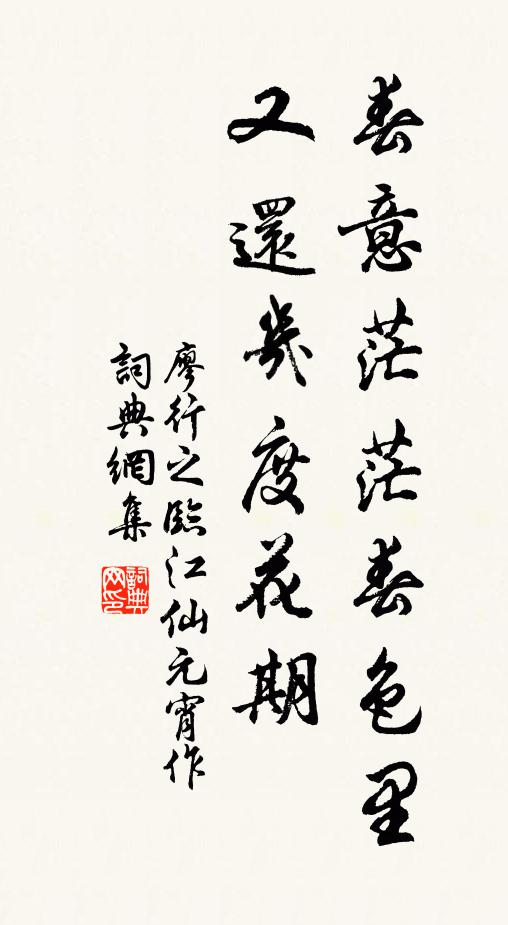 春意茫茫春色里
又還幾度花期
廖行之臨江仙元宵作
詞典網集
詞典网印